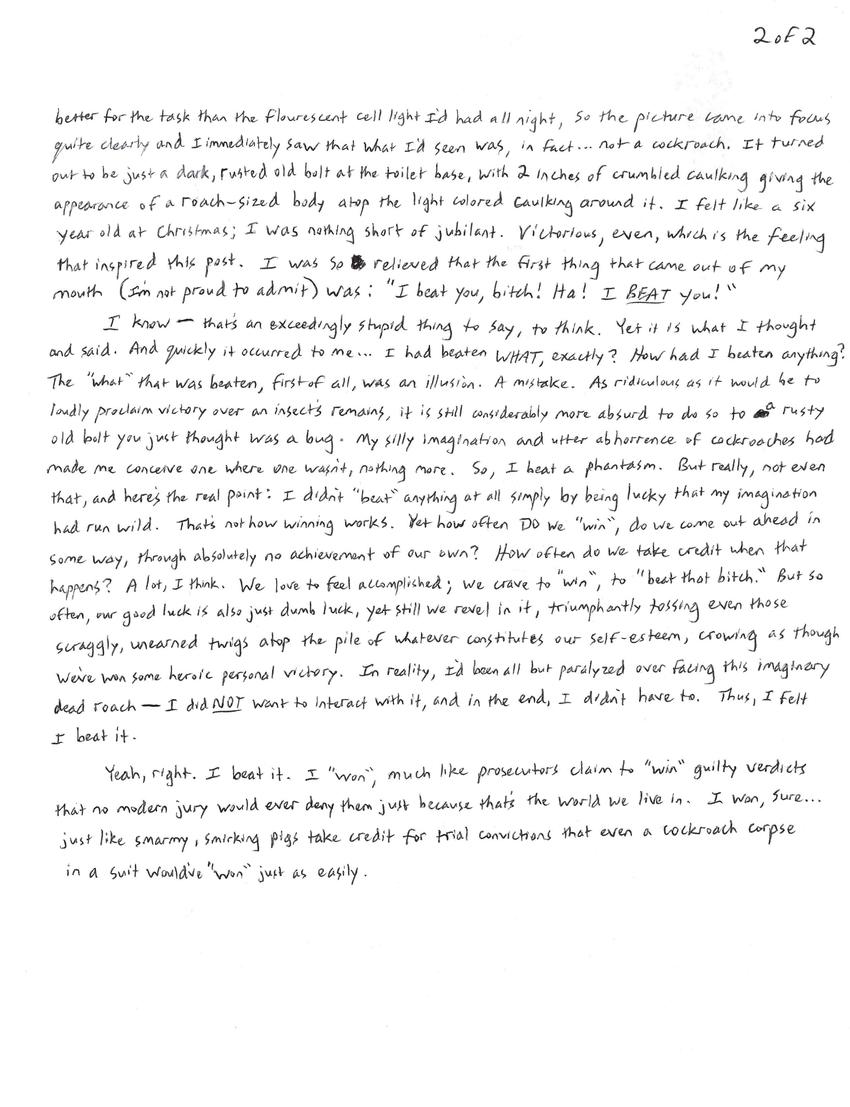 2 of 2
better for the task than the flourescent cell light I'd had all night, so the picture came into focus
quite clearly and I immediately saw that what I'd seen was, in fact... not a cockroach. It turned
out to be just a dark, rusted old bolt at the toilet base, with 2 inches of crumbled caulking giving the
appearance of a roach-sized body atop the light colored caulking around it. I felt like a six
year old at Christmas; I was nothing short of jubilant. Victorious, even, which is the feeling
that inspired this post. I was so relieved that the first thing that came out of my
mouth (I'm not proud to admit) was: "I beat you, bitch! Ha! I BEAT you!"
I know — that's an exceedingly stupid thing to say, to think. Yet it is what I thought
and said. And quickly it occurred to me... I had beaten WHAT, exactly? How had I beaten anything?
The "what" that was beaten, first of all, was an illusion. A mistake. As ridiculous as it would be to
loudly proclaim victory over an insect's remains, it is still considerably more absurd to do so to a rusty
old bolt you just thought was a bug. My silly imagination and utter abhorrence of cockroaches had
made me conceive one where one wasn't, nothing more. So, I beat a phantasm. But really, not even
that, and here's the real point: I didn't "beat" anything at all simply by being lucky that my imagination
had run wild. That's not how winning works. Yet how often DO we "win", do we come out ahead in
some way, through absolutely no achievement of our own? How often do we take credit when that
happens? A lot, I think. We love to feel accomplished; we crave to "win", to "beat that bitch." But so
often, our good luck is also just dumb luck, yet still we revel in it, triumphantly tossing even those
scraggly, unearned twigs atop the pile of whatever constitutes our self-esteem, crowing as though
we've won some heroic personal victory. In reality, I'd been all but paralyzed over facing this imaginary
dead roach — I did NOT want to interact with it, and in the end, I didn't have to. Thus, I felt
I beat it.
Yeah, right. I beat it. I "won", much like prosecutors claim to "win" guilty verdicts
that no modern jury would ever deny them just because that's the world we live in. I won, sure...
just like smarmy, smirking pigs take credit for trial convictions that even a cockroach corpse
in a suit would've "won" just as easily.